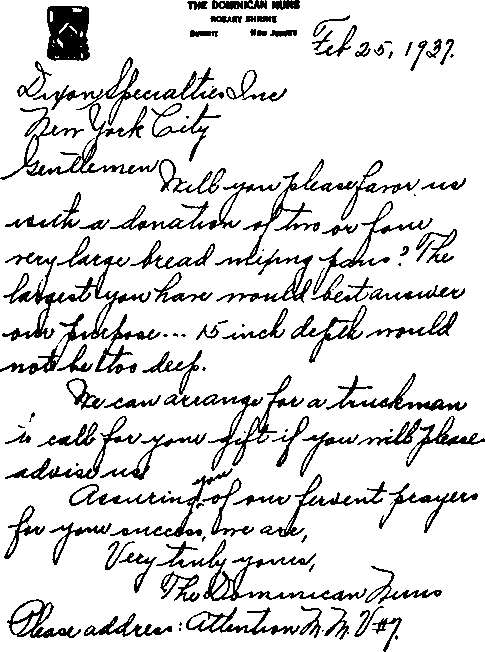 THE DOMINICAN NUNS
ROSARY SHRINE
SUMMIT NEW JERSEY
Feb 25, 1937.
Dixon Specialties Inc
New York City
Gentlemen
Will you please favor us
with a donation of two or four
very large bread mixing pans? The
largest you have would best answer
our purpose... 15 inch depth would
not be too deep.
We can arrange for a truckman
to call for your gift if you will please
advise us.
Assuring you of our fervent prayers
for your success, we are,
Very truly yours,
The Dominican Nuns
Please address: Attention M.M.V#7.